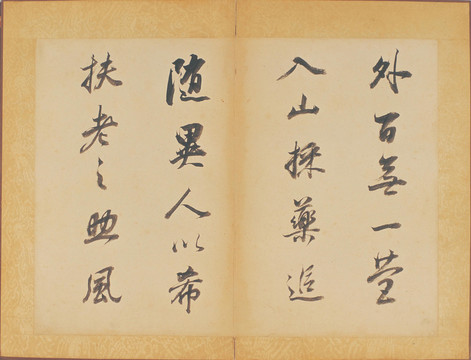 外百無一營
入山採藥追
隨異人以希
扶老之助風